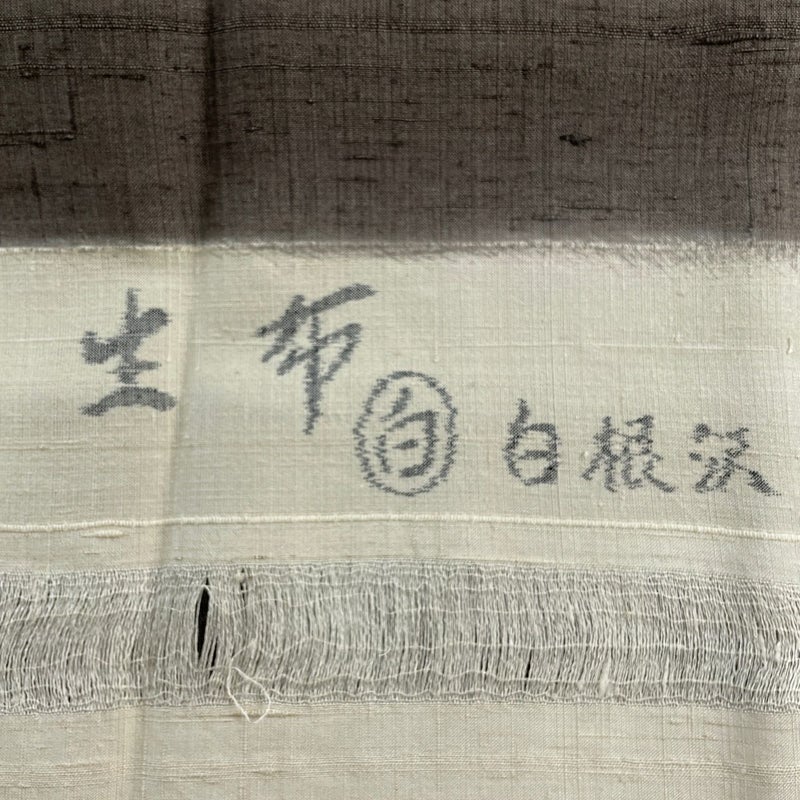 生布
白 白根沢